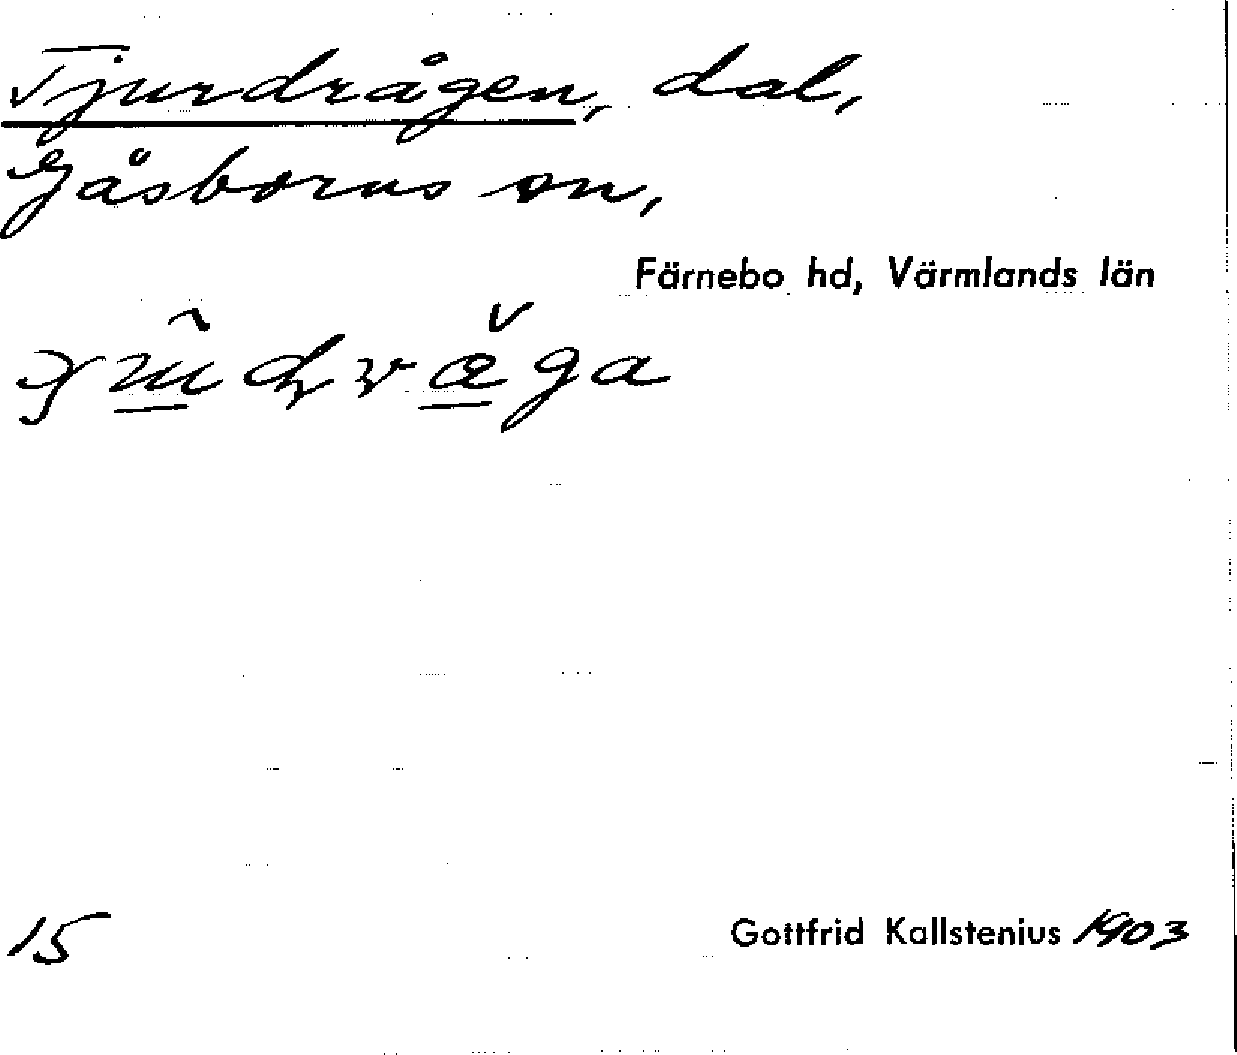 Tjurdrågen, dal,
Gåsborns sn,
Färnebo hd, Värmlands län
15
Gottfrid Kallstenius 1903